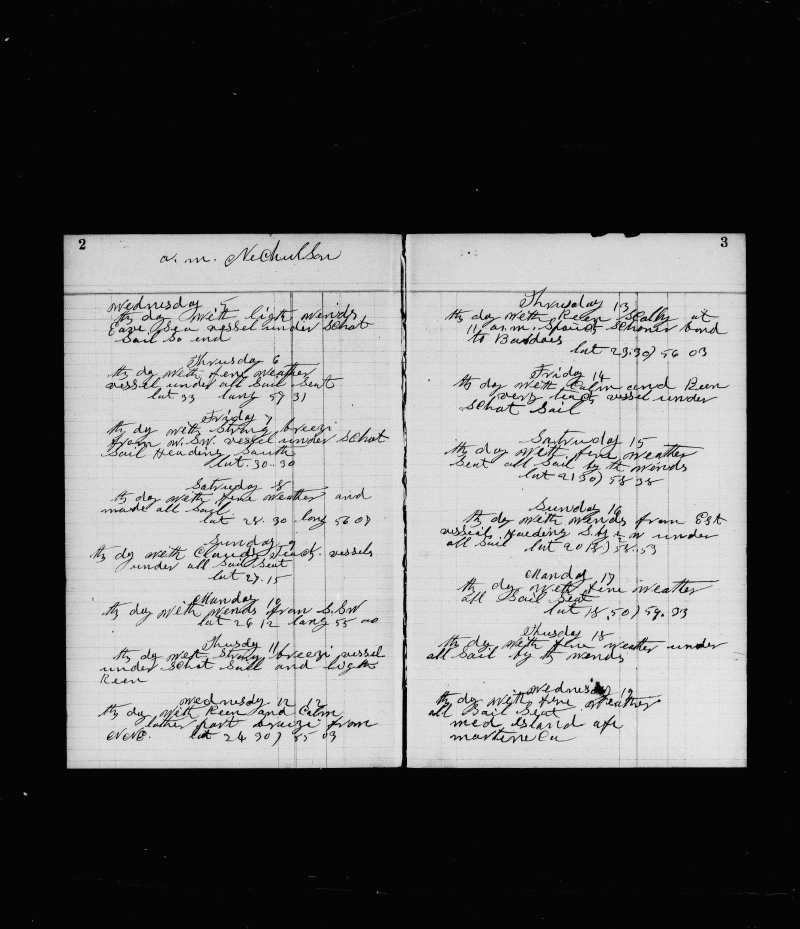 2
a. m. Nechulson
Wednesday 5
th dy with ligth wends
Eave Sea vessel under Schat
Sail So end
Thrusday 6
th dy with fene weather
vessel under all Sail Seat
lat 33 lang 59 31
Friday 7
th dy with Strong breezi
from W.SW. vessel under Schat
Sail Heading South
lat. 30.30
Satruday 8
th dy with fene weather and
made all Sail
lat 28.30 long 56 07
Sunday 9
th dy with Claudy vessels
under all Sail Seat
lat 27.15
Manday 10
th dy with wends from S.SW
lat 26 12 lang 55 00
Thusdy 11
th dy wet Strong breezi vessel
under Schat Sall and ligth
Reen
wednesdy 12 12
th dy with Reen and Calm
lather part breezi from
lat 24 30) 55 03
3
Thrusday 13
th day with Reen Sqally at
11 a.m. Schoner bond
to Bardaes
lat 23.30) 56 03
Friday 14
th dy with Calm and Reen
very vessel under
Schat Sail
Satruday 15
th dy with fine weather
Seat all Sail by th wends
lat 21 50) 58 38
Sunday 16
th dy with wends from Est
vesseil Heeding S. under
all Sail lat 20 18) 58.53
Manday 17
th dy with fine weather
all Sail Seat
lat 18.50) 59.33
Thusday 18
th dy with fine weather under
all Sail by th wends
wednesdy 19
th dy with fene Weather
all Sail Seat
med esland afe
martene Ca